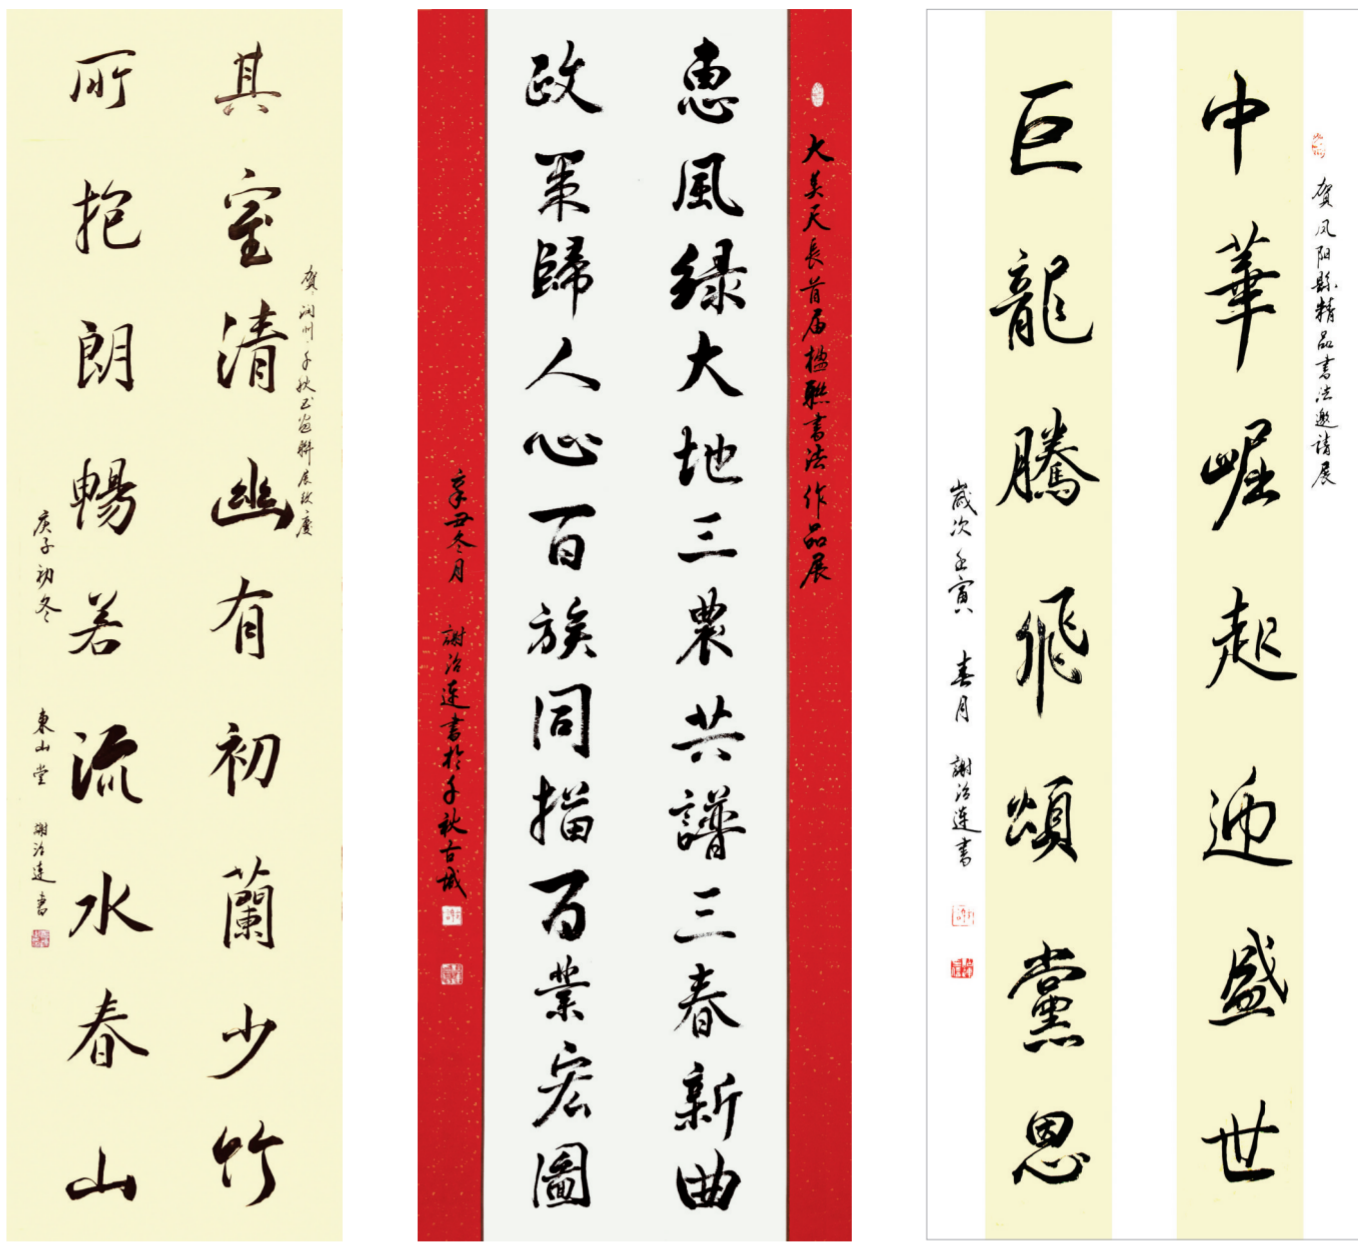 贺润州千秋聯展
其室清幽有初蘭少竹
所抱朗暢若流水春山
庚子初冬 東山堂 謝治連書
大美天長首届楹聯書法作品展
惠風緑大地三農共譜三春新曲
政策歸人心百族同描百業宏圖
辛丑冬月 謝治連書於千秋古城
贺凤阳縣精品書法邀請展
中華崛起迎盛世
巨龍騰飛頌黨恩
歲次壬寅 春月 謝治連書